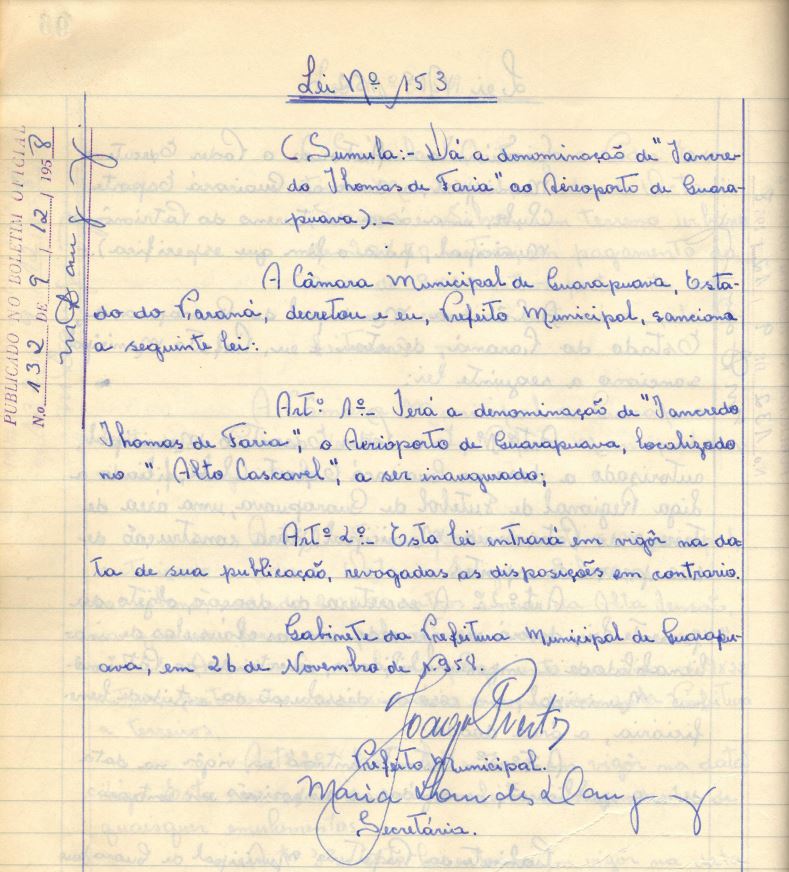 Lei Nº 153
(Sumula:- Dá a denominação de "Tancre-
do Thomas de Faria" ao Aéroporto de Guara-
puava).-
A Câmara Municipal de Guarapuava, Esta-
do do Paraná, decretou e eu, Prefeito Municipal, sanciono
a seguinte lei:
Artº 1º- Terá a denominação de "Tancredo
Thomas de Faria", o Aerioporto de Guarapuava, localizado
no "Alto Cascavel", a ser inaugurado;
Artº 2º- Esta lei entrará em vigôr na da-
ta de sua publicação, revogadas as disposições em contrario.
Gabinete da Prefeitura Municipal de Guarapu-
ava, em 26 de Novembro de 1.958.
Prefeito Municipal.
Maria
Secretária.
PUBLICADO NO BOLETIM OFICIAL
N.o 132 DE 9 / 12 / 1958